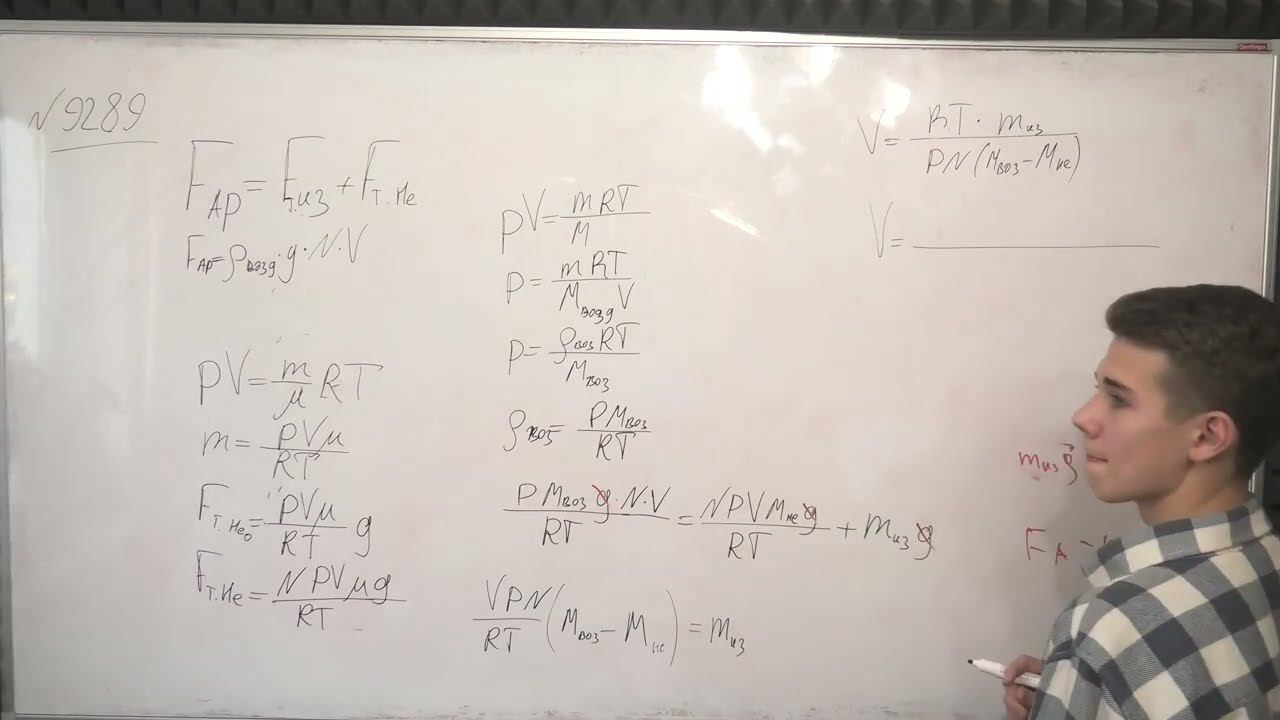 N 9289
F_Ар = F_из + F_т.He
F_Ар = ρ_возд · g · N · V
pV = m/μ RT
m = pVμ/RT
F_т.He₀ = pVμ/RT g
F_т.He = NPVμg/RT
pV = mRT/M
p = mRT/M_возд V
p = ρ_воз RT/M_воз
ρ_воз = PM_воз/RT
PM_воз g · N · V/RT = NPVM_He g/RT + m_из g
VPN/RT (M_воз − M_He) = m_из
V = RT · m_из/PN(M_воз − M_He)
V =
m_из g
F_А